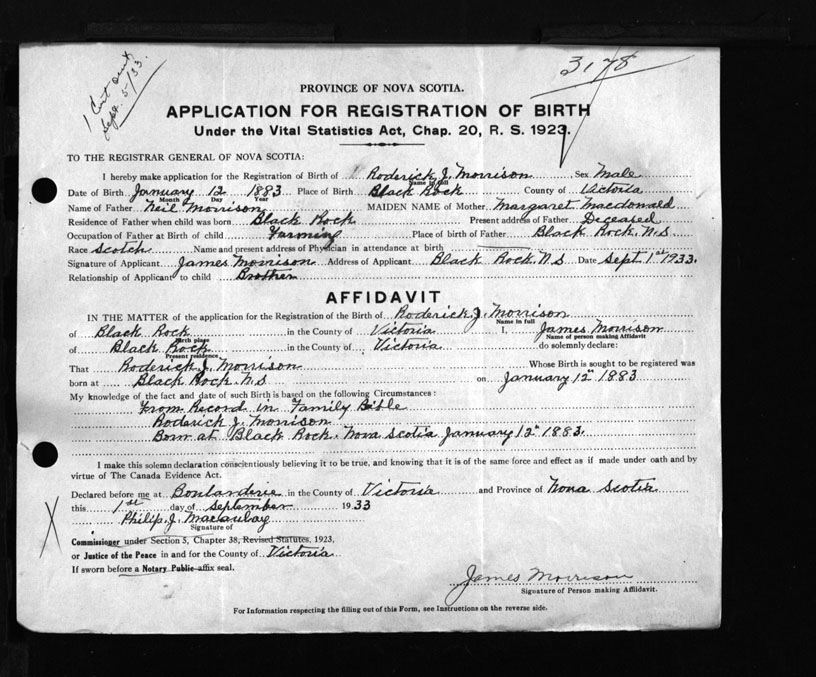 1 Cert sent
Sept. 5/33.
3178
PROVINCE OF NOVA SCOTIA.
APPLICATION FOR REGISTRATION OF BIRTH
Under the Vital Statistics Act, Chap. 20, R. S. 1923.
TO THE REGISTRAR GENERAL OF NOVA SCOTIA:
I hereby make application for the Registration of Birth of Roderick J. Morrison Sex Male
Name in full
Date of Birth January 12 1883 Place of Birth Black Rock County of Victoria
Month Day Year
Name of Father Neil Morrison MAIDEN NAME of Mother Margaret Macdonald
Residence of Father when child was born Black Rock Present address of Father Deceased
Occupation of Father at Birth of child Farming Place of birth of Father Black Rock. N.S
Race Scotch Name and present address of Physician in attendance at birth
Signature of Applicant James Morrison Address of Applicant Black Rock. N.S Date Sept 1st 1933.
Relationship of Applicant to child Brother
AFFIDAVIT
IN THE MATTER of the application for the Registration of the Birth of Roderick. J. Morrison
Name in full
of Black Rock in the County of Victoria I, James Morrison
Birth place Name of person making Affidavit
of Black Rock in the County of Victoria do solemnly declare:
Present residence
That Roderick J. Morrison Whose Birth is sought to be registered was
born at Black Rock N.S on January 12th 1883
My knowledge of the fact and date of such Birth is based on the following Circumstances:
From Record in Family Bible
Roderick J. Morrison
Born at Black Rock. Nova Scotia January 12th 1883.
I make this solemn declaration conscientiously believing it to be true, and knowing that it is of the same force and effect as if made under oath and by
virtue of The Canada Evidence Act.
Declared before me at Boulardrie in the County of Victoria and Province of Nova Scotia
this 1st day of September 1933
Philip. J. Macaulay
Signature of
Commissioner under Section 5, Chapter 38, Revised Statutes, 1923,
or Justice of the Peace in and for the County of Victoria
If sworn before a Notary Public affix seal.
X
James Morrison
Signature of Person making Affidavit.
For Information respecting the filling out of this Form, see Instructions on the reverse side.